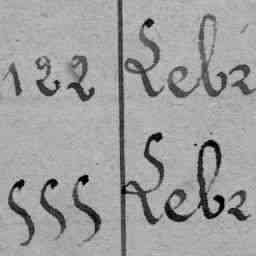 122 Lebr
555 Lebr